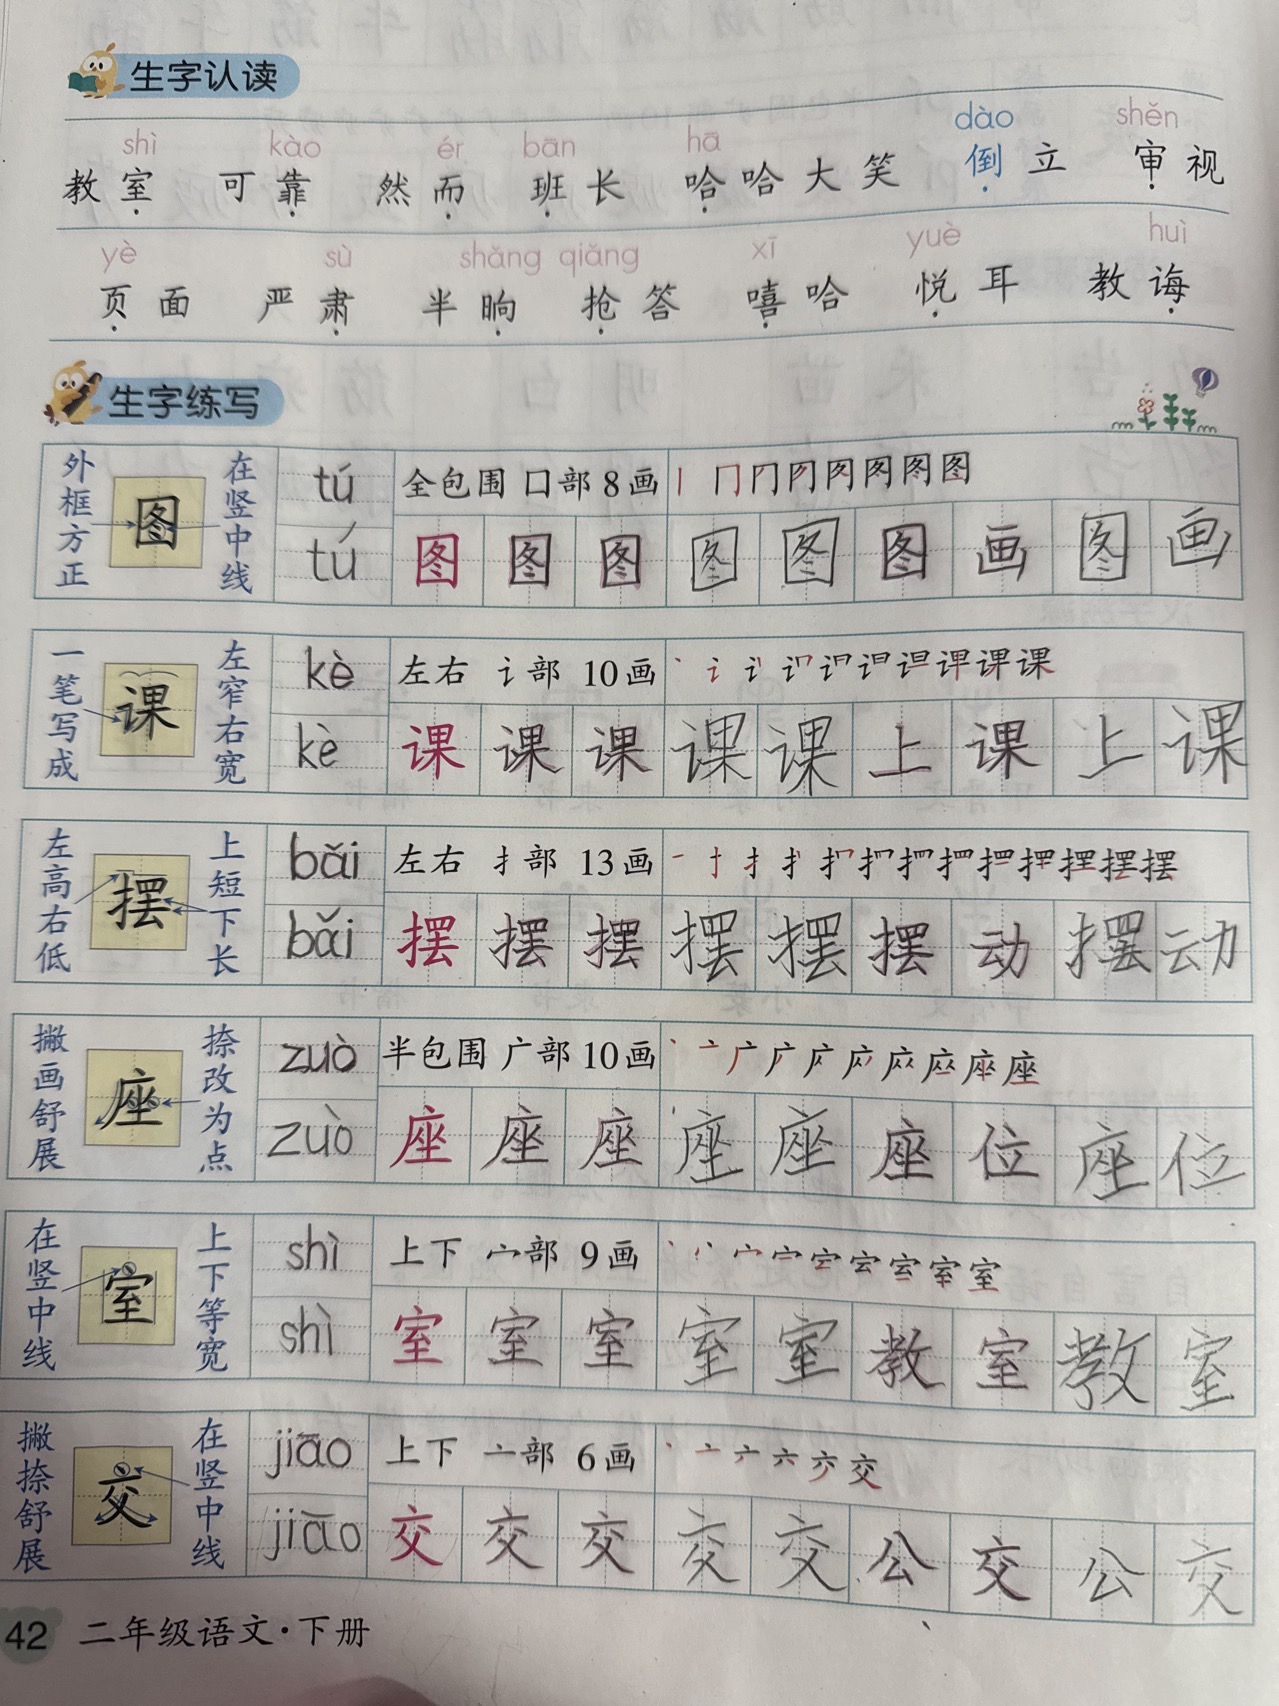 生字认读
shì kào ér bān hā dào shěn
教室 可靠 然而 班长 哈哈大笑 倒立 审视
yè sù shǎng qiǎng xī yuè huì
页面 严肃 半晌 抢答 嘻哈 悦耳 教诲
生字练写
外框方正 图 在竖中线 tú 全包围 口部 8画 丨 冂 图
tú 图 图 图 图 图 图 画 图 画
一笔写成 课 左窄右宽 kè 左右 讠部 10画 丶 讠 课
kè 课 课 课 课 课 上 课 上 课
左高右低 摆 上短下长 bǎi 左右 扌部 13画 一 扌 摆
bǎi 摆 摆 摆 摆 摆 摆 动 摆 动
撇画舒展 座 捺改为点 zuò 半包围 广部 10画 丶 亠 广 座
zuò 座 座 座 座 座 座 位 座 位
在竖中线 室 上下等宽 shì 上下 宀部 9画 丶 宀 室
shì 室 室 室 室 室 教 室 教 室
撇捺舒展 交 在竖中线 jiāo 上下 亠部 6画 丶 亠 六 交
jiāo 交 交 交 交 交 公 交 公 交
42 二年级语文·下册